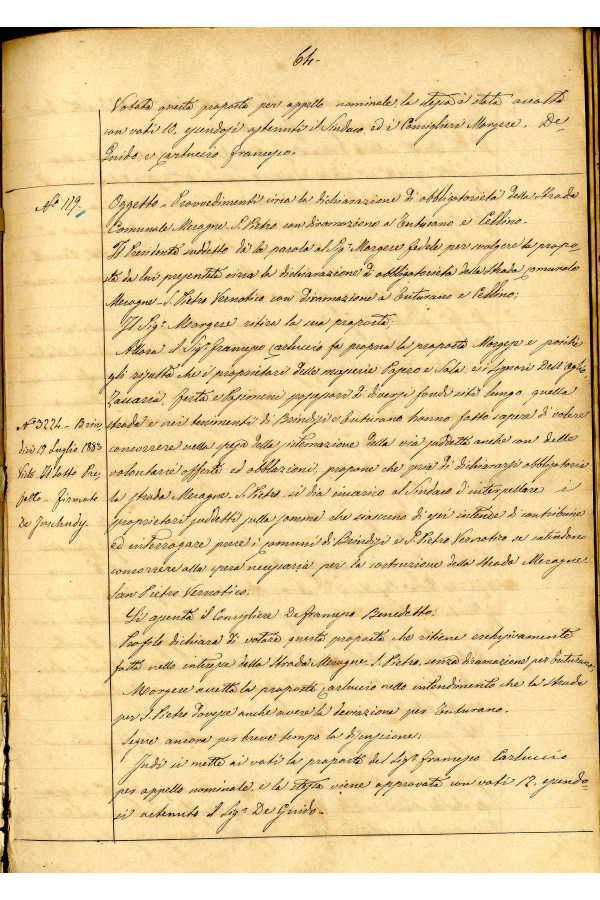 64.
Votata questa proposta per appello nominale la stessa è stata accolta
con voti 10, essendosi astenuti il Sindaco, ed i Consiglieri Morgese, De
Guido, e Carluccio Francesco.
N.o 119.
Oggetto - Provvedimenti circa la dichiarazione di obbligatorietà della Strada
Comunale Mesagne S. Pietro con diramazione a Tuturano e Cellino.
Il Presidente suddetto dà la parola al Sig.r Morgese Fedele per svolgere la propo
sta da lui presentata circa la dichiarazione di obbligatorietà della Strada comunale
Mesagne - S. Pietro Vernotico con diramazione a Tuturano e Cellino;
Il Sig.r Morgese ritira la sua proposta;
Allora il Sig.r Francesco Carluccio fa propria la proposta Morgese e poiché
gli risulta che i proprietari delle masserie Paperi e Sala, e i Signori Dell'Aglio
Zaccaria, possessori di diversi fondi siti lungo quella
strada e nei tenimenti di Brindisi e Tuturano hanno fatto sapere di volere
concorrere nella spesa della sistemazione della via suddetta anche con delle
volontarie offerte ed obblazioni, propone che pria di dichiararsi obbligatoria
la strada Mesagne S. Pietro si dia incarico al Sindaco d'interpellare i
proprietari suddetti sulla somma che ciascuno di essi intende di contribuire
ed interrogare pure i comuni di Brindisi e S. Pietro Vernotico se intendono
concorrere alla spesa necessaria per la costruzione della strada Mesagne
San Pietro Vernotico.
N.o 3224 - Brin
disi 19 Luglio 1883
Visto Il Sotto Pre
fetto - firmato
De
Si assenta il Consigliere De Francesco Benedetto;
Profilo dichiara di votare questa proposta che ritiene esclusivamente
fatta nello interesse della Strada Mesagne S. Pietro, senza diramazione per Tuturano,
Morgese accetta la proposta Carluccio nello intendimento che la Strada
per S. Pietro dovesse anche avere la deviazione per Tuturano.
Segue ancora per breve tempo la discussione;
Indi si mette ai voti la proposta del Sig.r Francesco Carluccio
per appello nominale, e la stessa viene approvata con voti 12, essendo-
si astenuto il Sig.r De Guido.